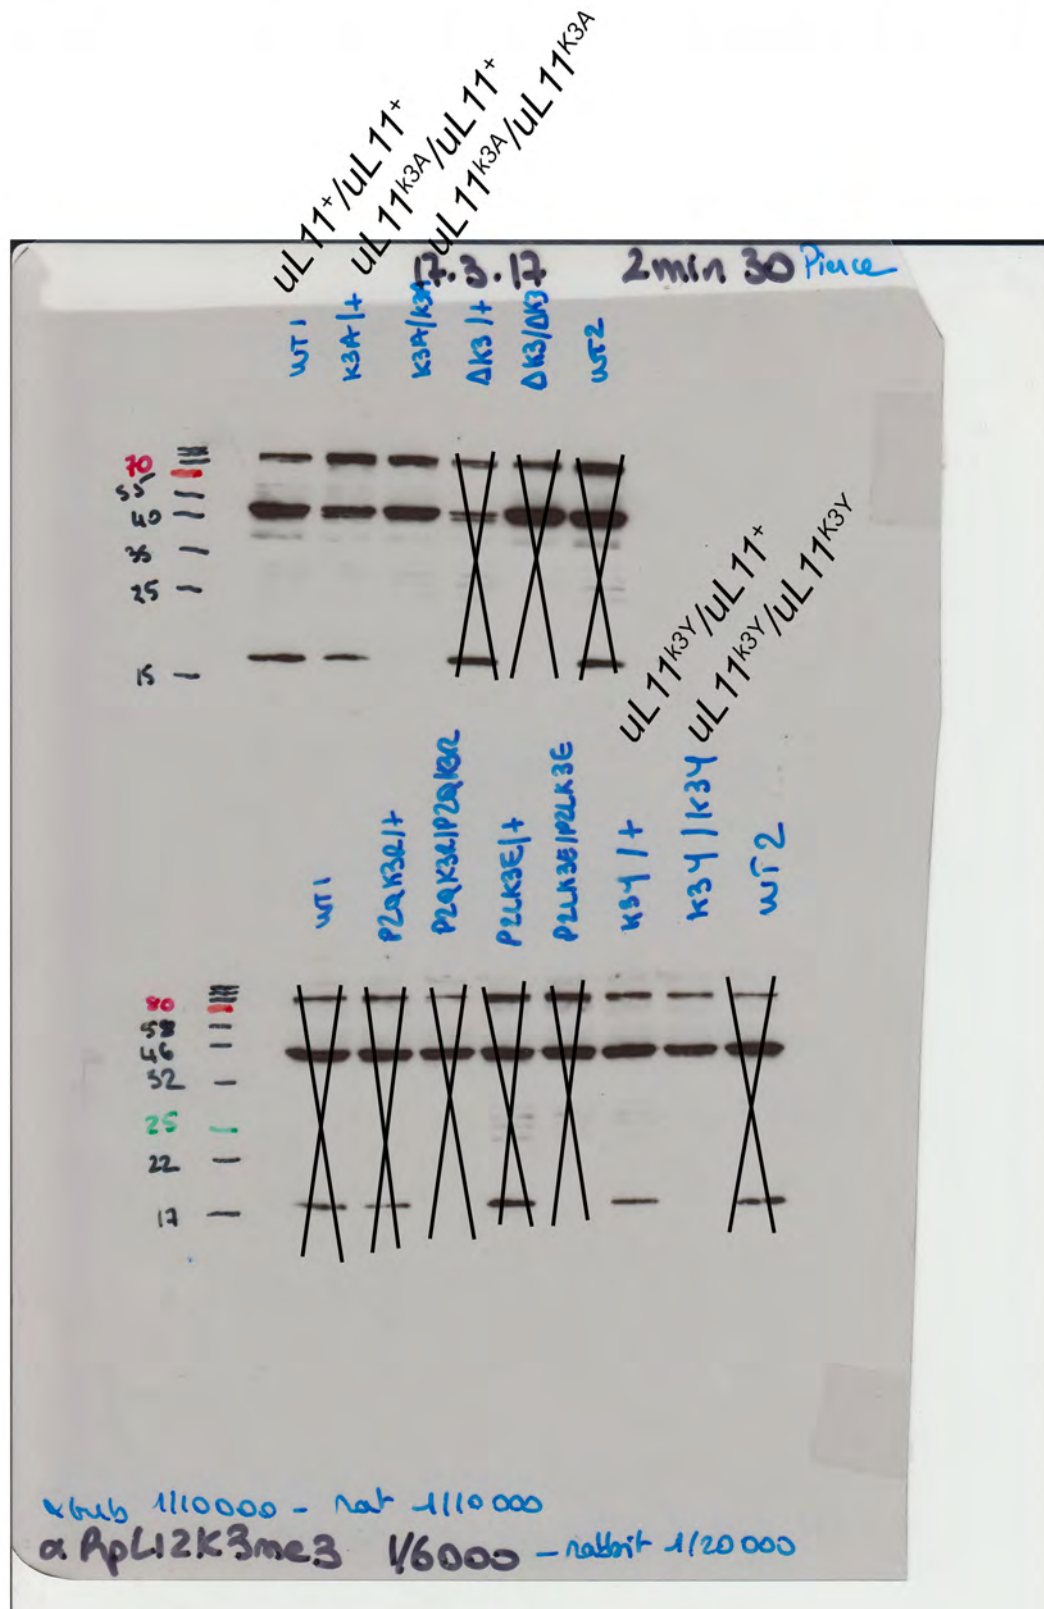 uL11⁺/uL11⁺
uL11ᴷ³ᴬ/uL11⁺
uL11ᴷ³ᴬ/uL11ᴷ³ᴬ
17.3.17 2min 30 Pierce
WT1
K3A/+
K3A/K3A
ΔK3/+
ΔK3/ΔK3
WT2
70
55
40
35
25
15
uL11ᴷ³ʸ/uL11⁺
uL11ᴷ³ʸ/uL11ᴷ³ʸ
WT1
P2QK3R/+
P2QK3R/P2QK3R
P2LK3E/+
P2LK3E/P2LK3E
K3Y/+
K3Y/K3Y
WT2
80
58
46
32
25
22
17
αtub 1/10000 - rat 1/10000
α RpL12K3me3 1/6000 - rabbit 1/20000